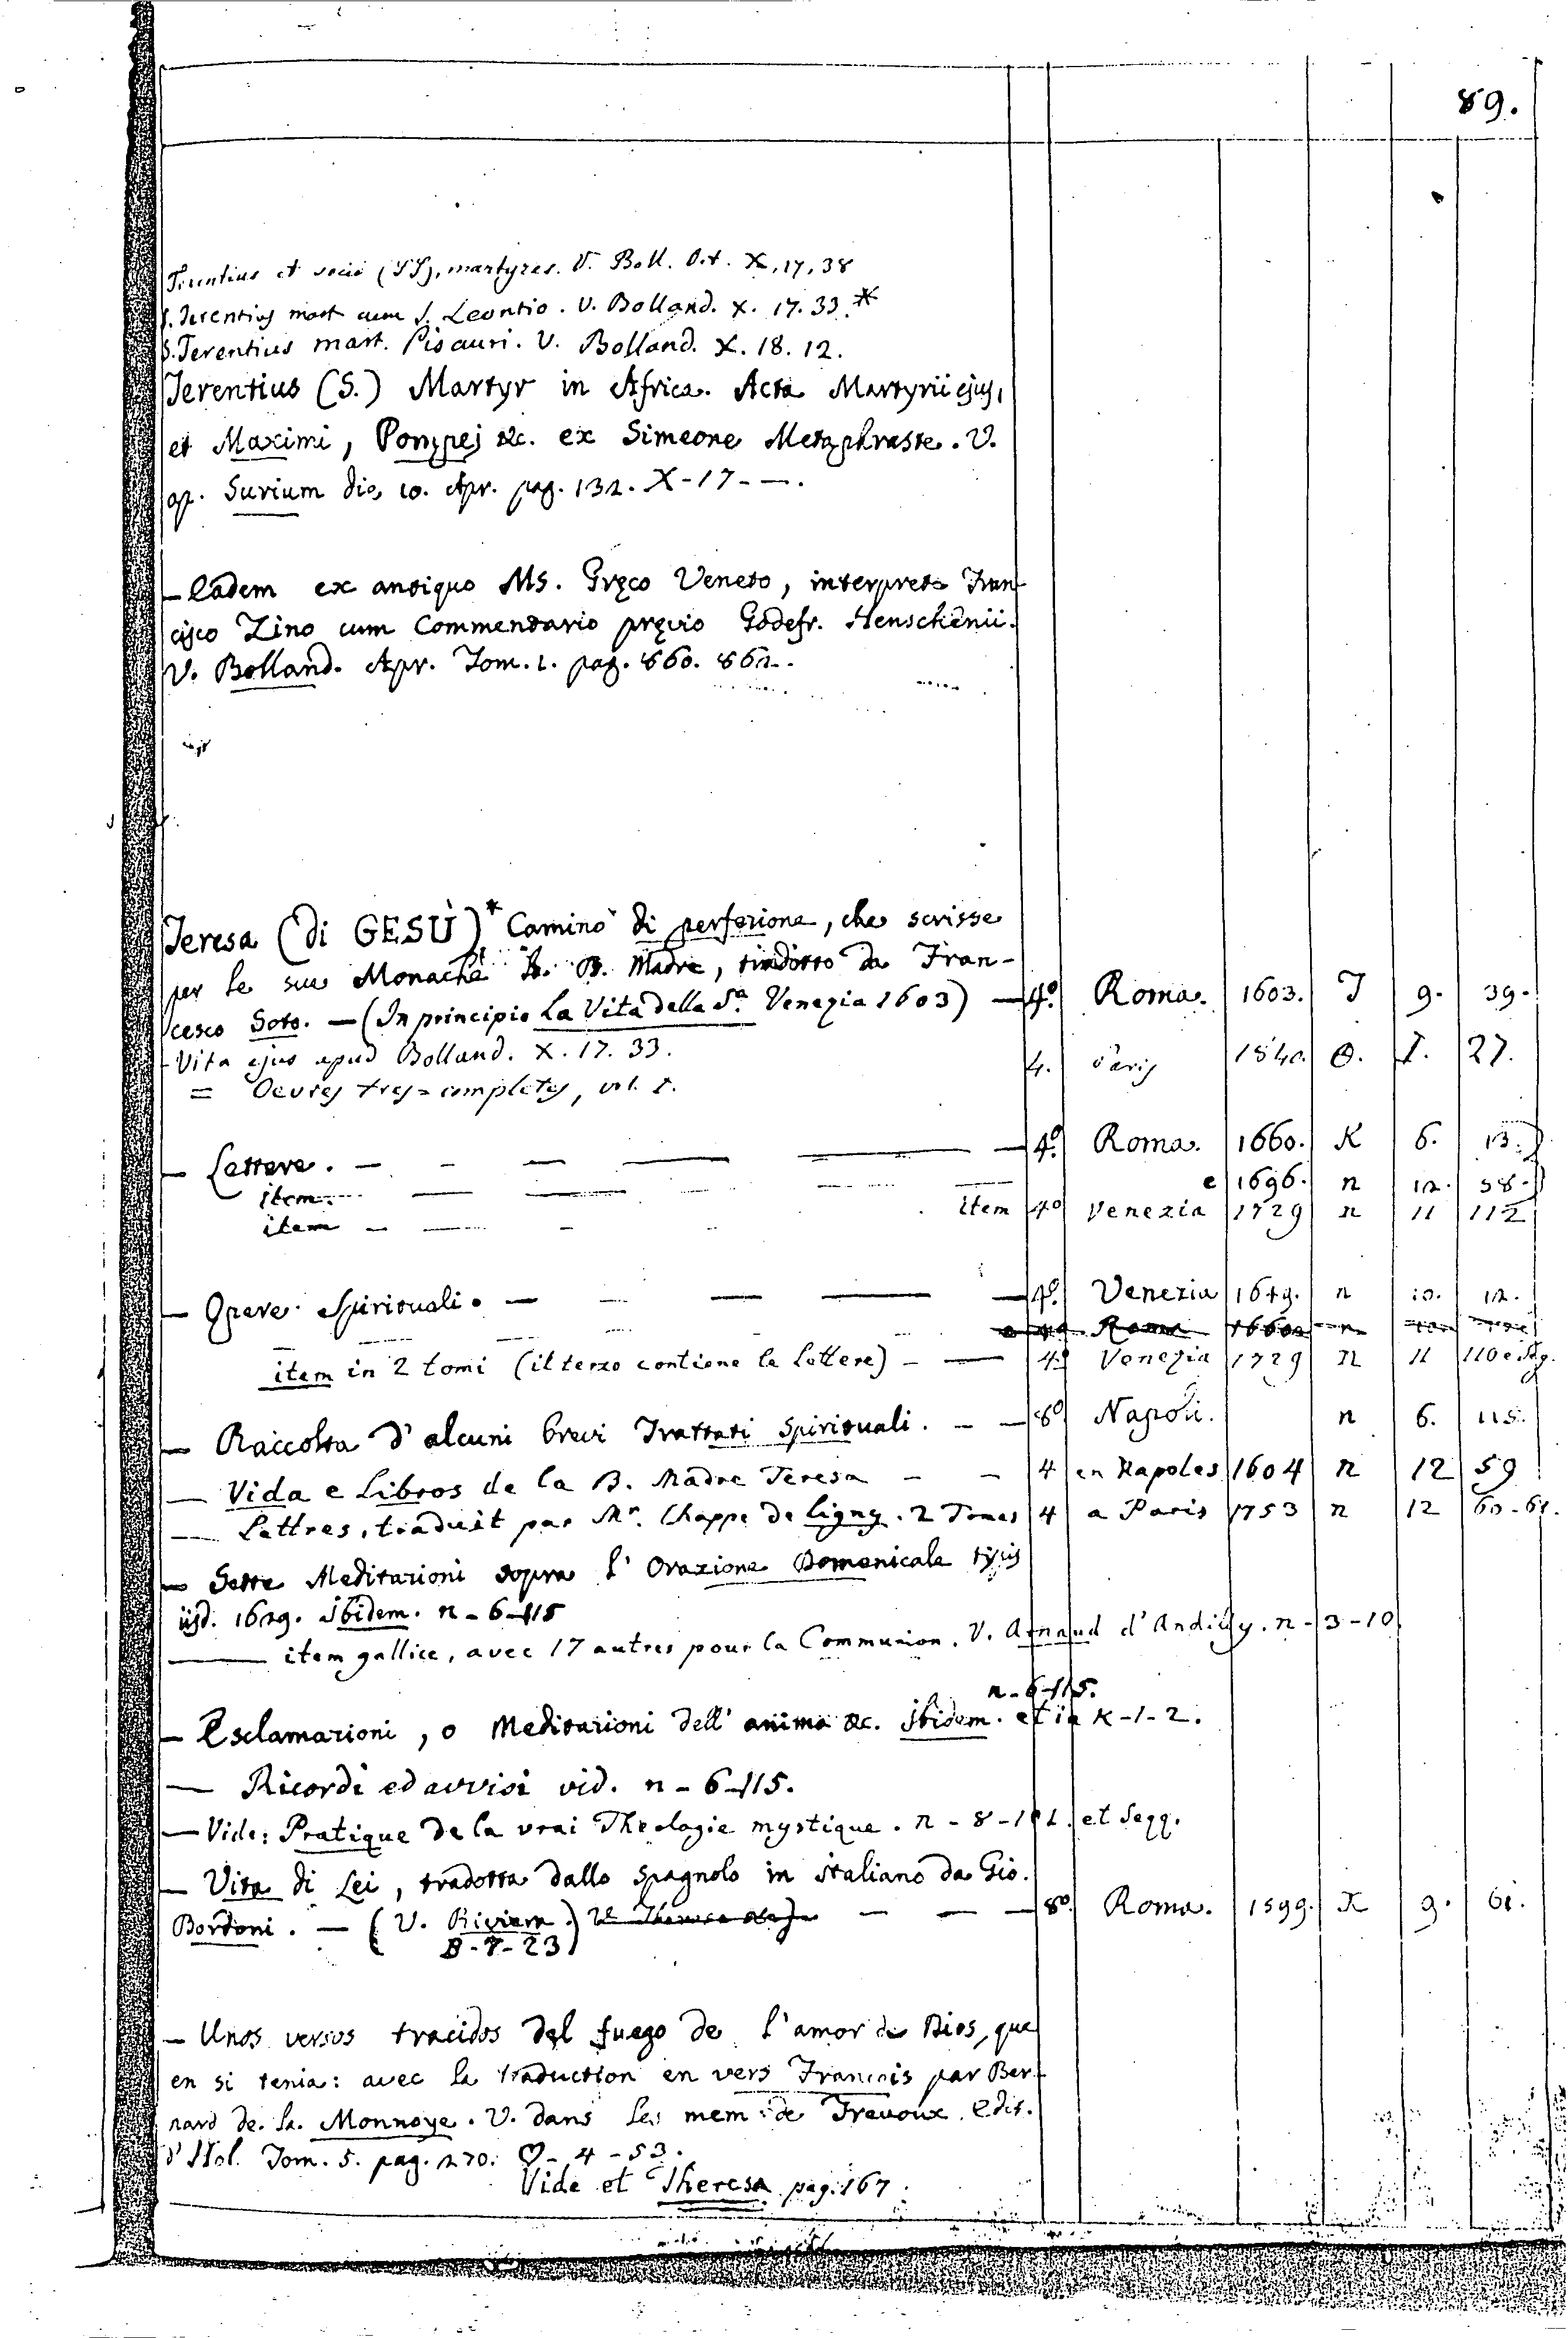 89.
Terentius et socii (SS), martyres. V. Boll. Oct. X, 17, 38
S. Terentius mart cum S. Leontio. V. Bolland. X. 17. 33. *
S. Terentius mart. Pisauri. V. Bolland. X. 18. 12.
Terentius (S.) Martyr in Africa. Acta Martyrii ejus,
et Maximi, Pompej &c. ex Simeone Metaphraste. V.
ap. Surium die 10. Apr. pag. 132. X-17- —.
— Eadem ex antiquo Ms. Gręco Veneto, interprete Fran-
cisco Zino cum Commendario pręvio Godefr. Henschenii.
V. Bolland. Apr. Tom. 1. pag. 860. 862.
Teresa (di GESÙ)* Camino di perfezione, che scrisse
per le sue Monache la B. Madre, tradotto da Fran-
cesco Soto. — (In principio La Vita della S.a Venezia 1603) — 4.o Roma. 1603. J 9. 39.
- Vita ejus apud Bolland. X. 17. 33.
= Oeuvres tres=completes, vol. I. 4. Paris 1840. O. I. 27.
— Lettere. — — — — 4.o Roma. 1660. K 6. 13.
item. — — — e 1696. n 12. 38.
item — — — item 4o Venezia 1729 n 11 112
— Opere Spirituali. — — — — 4.o Venezia 1649. n 10. 12.
4o Roma 1660 n
item in 2 tomi (il terzo contiene le lettere) — — 4.o Venezia 1729 n 11 110 e seg.
— Raccolta d'alcuni brevi Trattati Spirituali. — — 8o Napoli. n 6. 115.
— Vida e Libros de la B. Madre Teresa — — 4 en Napoles 1604 n 12 59
— Lettres, traduit par Mr. Chappe de Ligny. 2 Tomes 4 a Paris 1753 n 12 60-61.
— Sette Meditazioni sopra l'Orazione Domenicale typis
iisd. 1629. Ibidem. n-6-115
— item gallice, avec 17 autres pour la Communion. V. Arnaud d'Andilly. n-3-10
n-6-115.
— Esclamazioni, o Meditazioni dell'anima &c. Ibidem. et in K-1-2.
— Ricordi ed avvisi vid. n-6-115.
— Vide: Pratique de la vrai Theologie mystique. n-8-101. et Seqq.
— Vita di Lei, tradotta dallo Spagnolo in italiano da Gio.
Bordoni. — (V. Riviera.) — — — 8o. Roma. 1599. X 9. 61.
B-7-23
— Unos versos tracidos del fuego de l'amor de Dios, que
en si tenia: avec la traduction en vers Francois par Ber-
nard de la Monnoye. V. dans les mem. de Trevoux. Edit.
d'Hol. Tom. 5. pag. 270. ♡-4-53.
Vide et Theresa pag. 167.